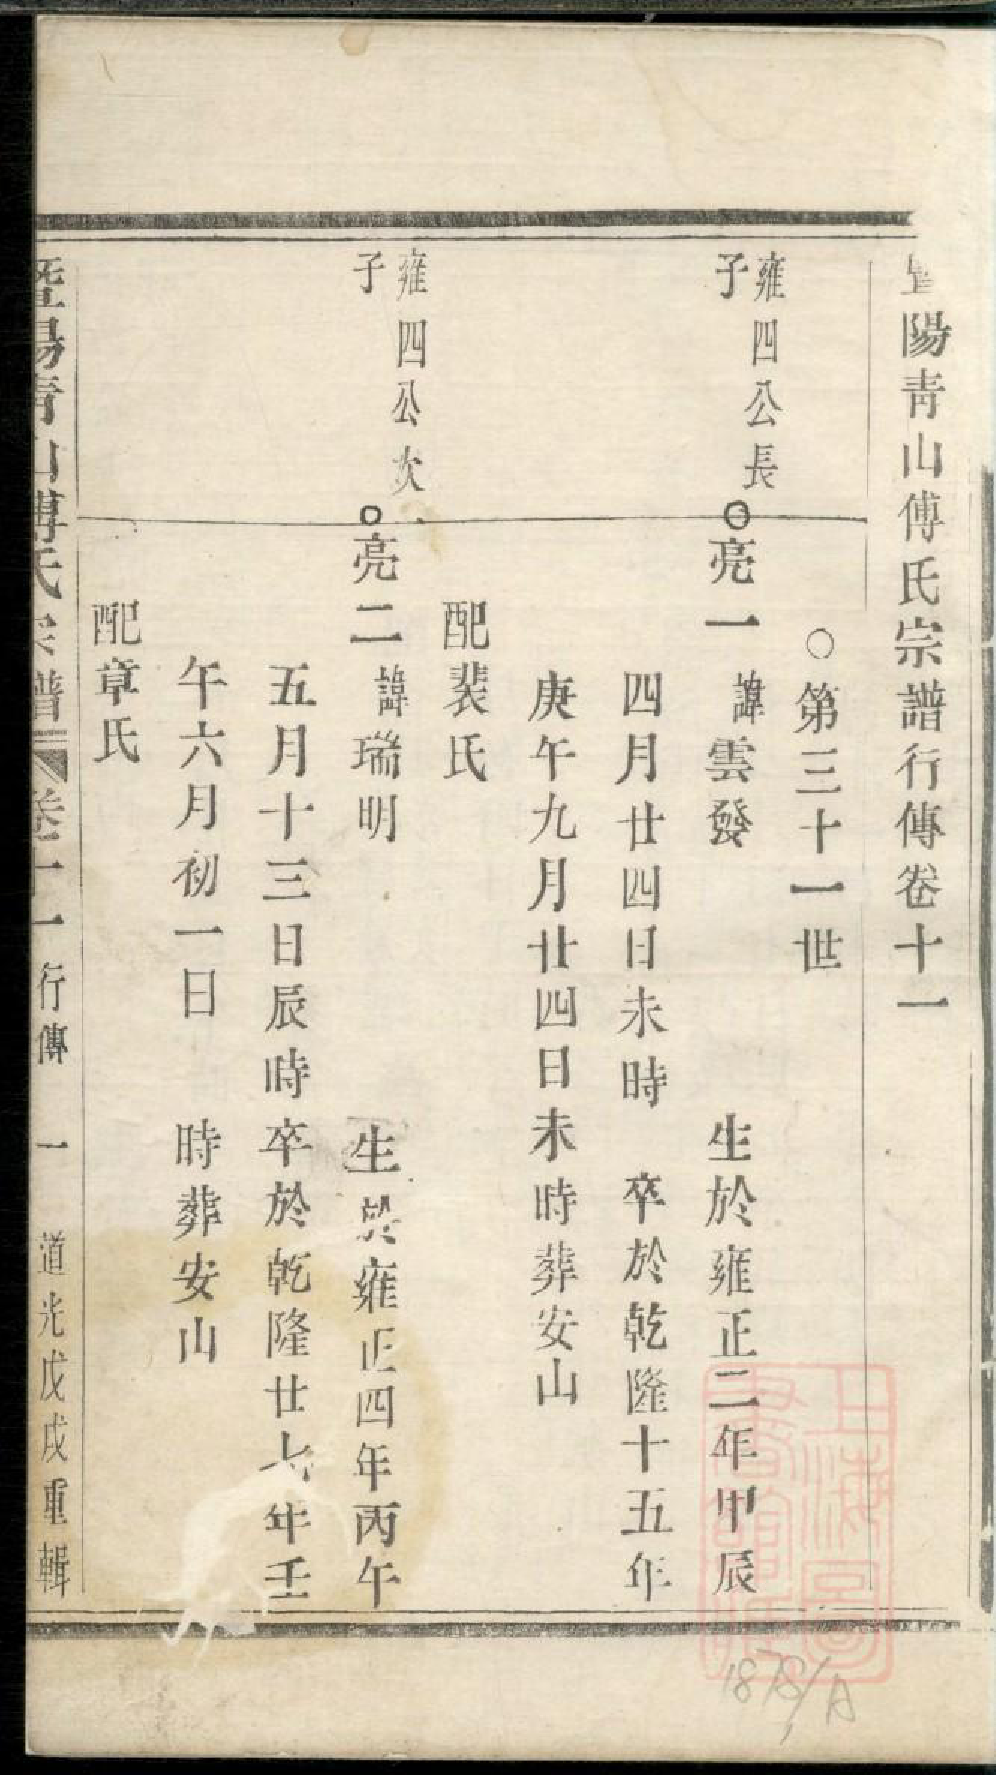 暨陽青山傅氏宗譜行傳卷十一
○第三十一世
雍四公長
子
○亮一 諱雲發 生於雍正二年甲辰
四月廿四日未時 卒於乾隆十五年
庚午九月廿四日未時葬安山
配裴氏
雍四公次
子
○亮二 諱瑞明 生於雍正四年丙午
五月十三日辰時卒於乾隆廿七年壬
午六月初一日 時葬安山
配章氏
暨陽青山傅氏宗譜 卷十一 行傳 一 道光戊戌重輯
上海圖
書館藏
1878/A